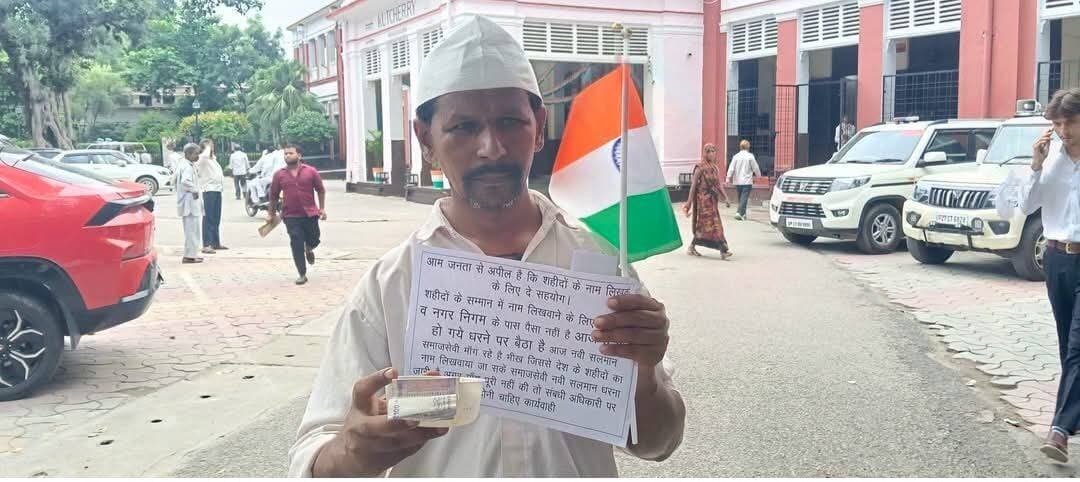 KUTCHERRY
आम जनता से अपील है कि शहीदों के नाम लिखने
के लिए दे सहयोग।
शहीदों के सम्मान में नाम लिखवाने के लिए
व नगर निगम के पास पैसा नहीं है आज
हो गये धरने पर बैठा है आज नवी सलमान
समाजसेवी माँग रहे है भीख जिससे देश के शहीदों का
नाम लिखवाया जा सके समाजसेवी नवी सलमान धरना
पूरी नहीं की तो संबंधी अधिकारी पर
चाहिए कार्यवाही